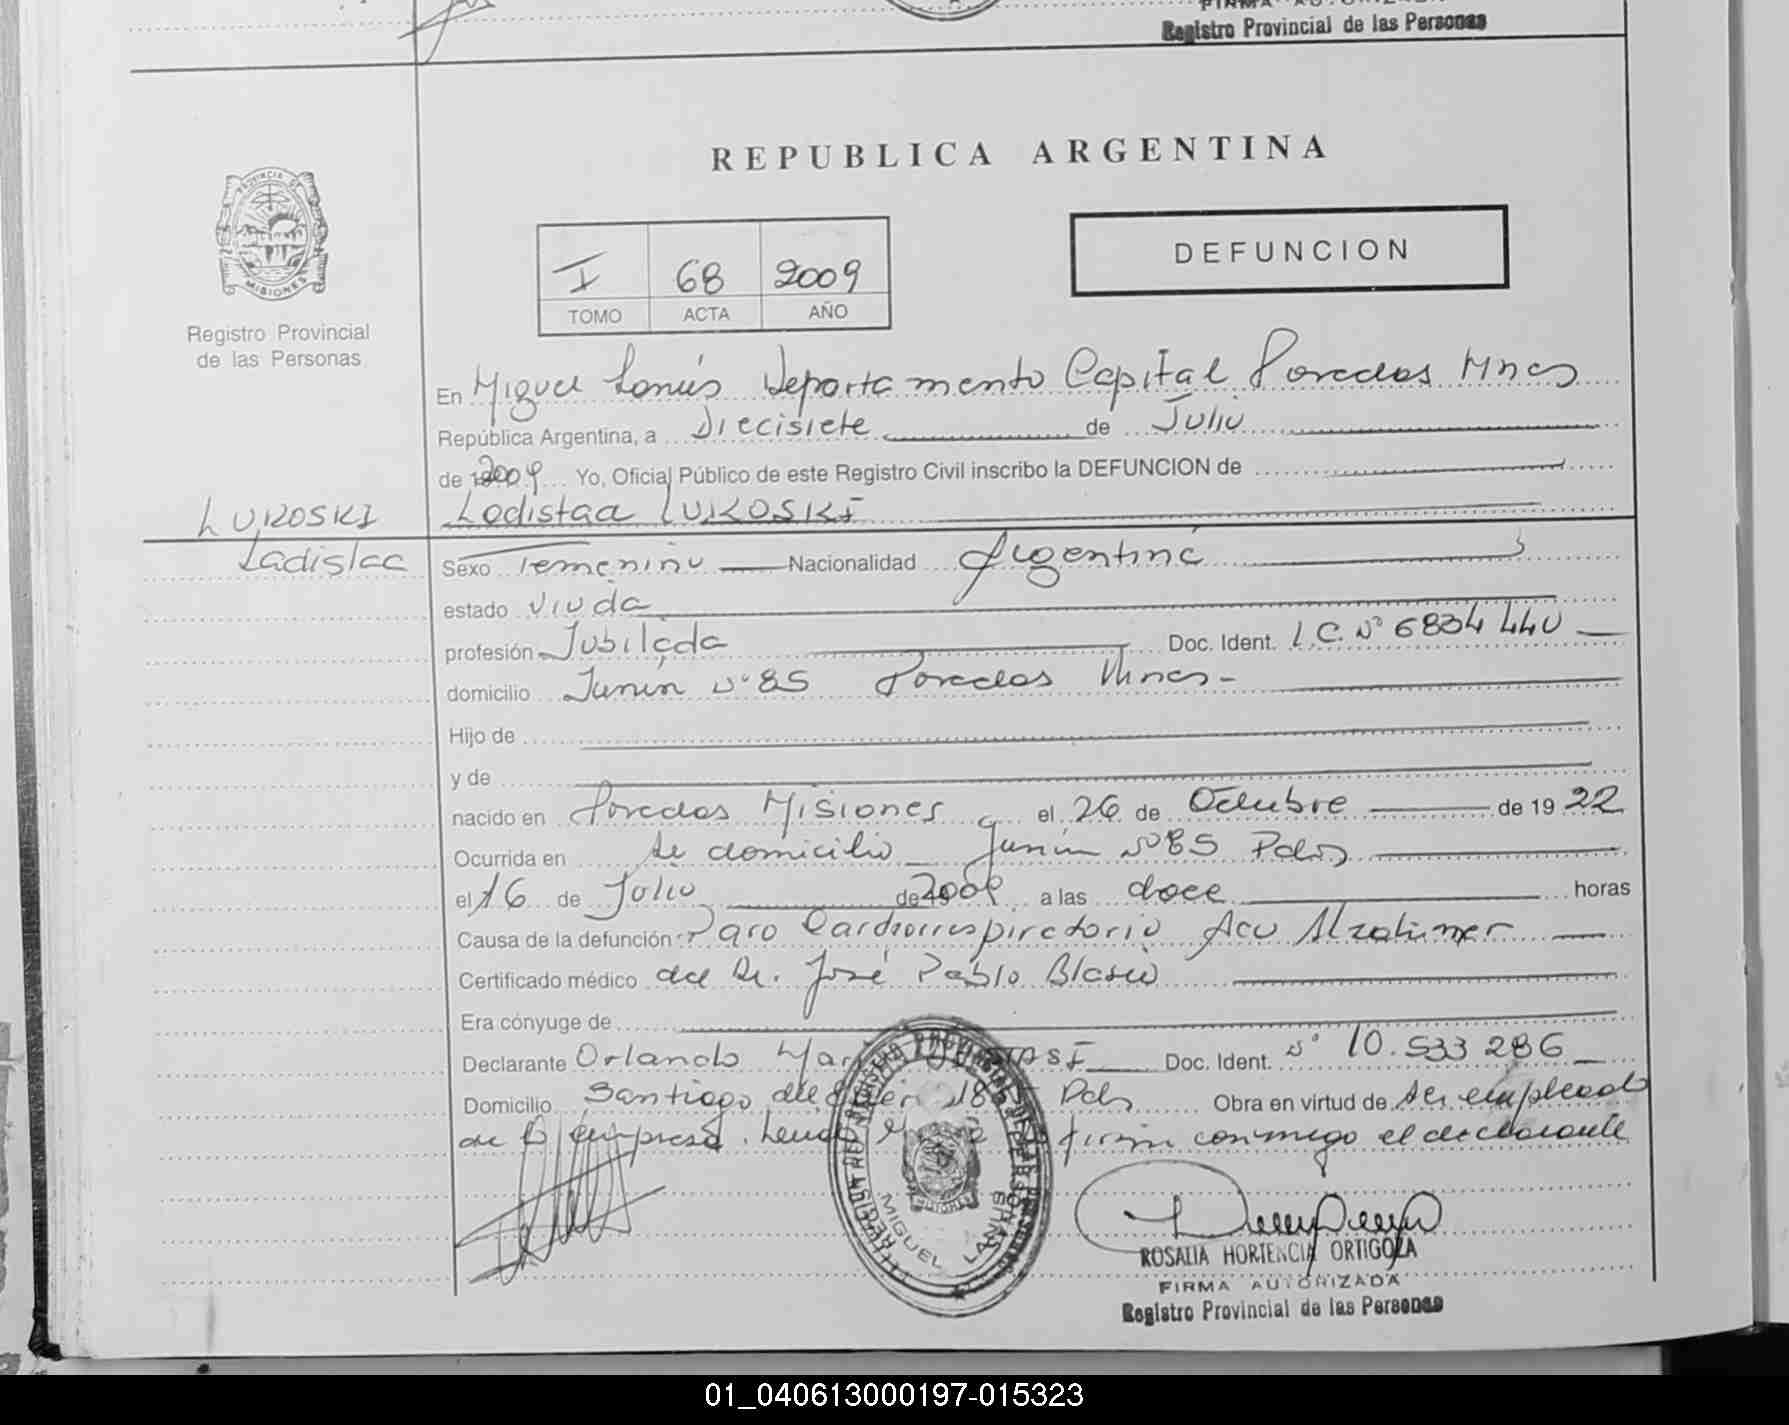 Registro Provincial de las Personas
PROVINCIA DE
MISIONES
Registro Provincial
de las Personas
REPUBLICA ARGENTINA
I 68 2009
TOMO ACTA AÑO
DEFUNCION
En Miguel Lanús Departamento Capital Posadas Mnes
República Argentina, a Diecisiete de Julio
de 2009 Yo, Oficial Público de este Registro Civil inscribo la DEFUNCION de
LUKOSKI Ladislaa LUKOSKI
Ladislaa Sexo Femenino Nacionalidad Argentina
estado Viuda
profesión Jubilada Doc. Ident. L.C. Nº 6834440
domicilio Junin Nº 85 Posadas Mnes-
Hijo de
y de
nacido en Posadas Misiones el 26 de Octubre de 19 22
Ocurrida en su domicilio Junin Nº 85 Pdas
el 16 de Julio de 2009 a las doce horas
Causa de la defunción Paro Cardiorrespiratorio Acv Alzahimer
Certificado médico del Dr. José Pablo Blasio
Era cónyuge de
Declarante Orlando Doc. Ident. Nº 10.533 286
Domicilio Santiago del Pdas Obra en virtud de ser empleado
de la empresa. firma conmigo el declarante
MIGUEL LANUS
ROSALIA HORTENCIA ORTIGOZA
FIRMA AUTORIZADA
Registro Provincial de las Personas
01_040613000197-015323